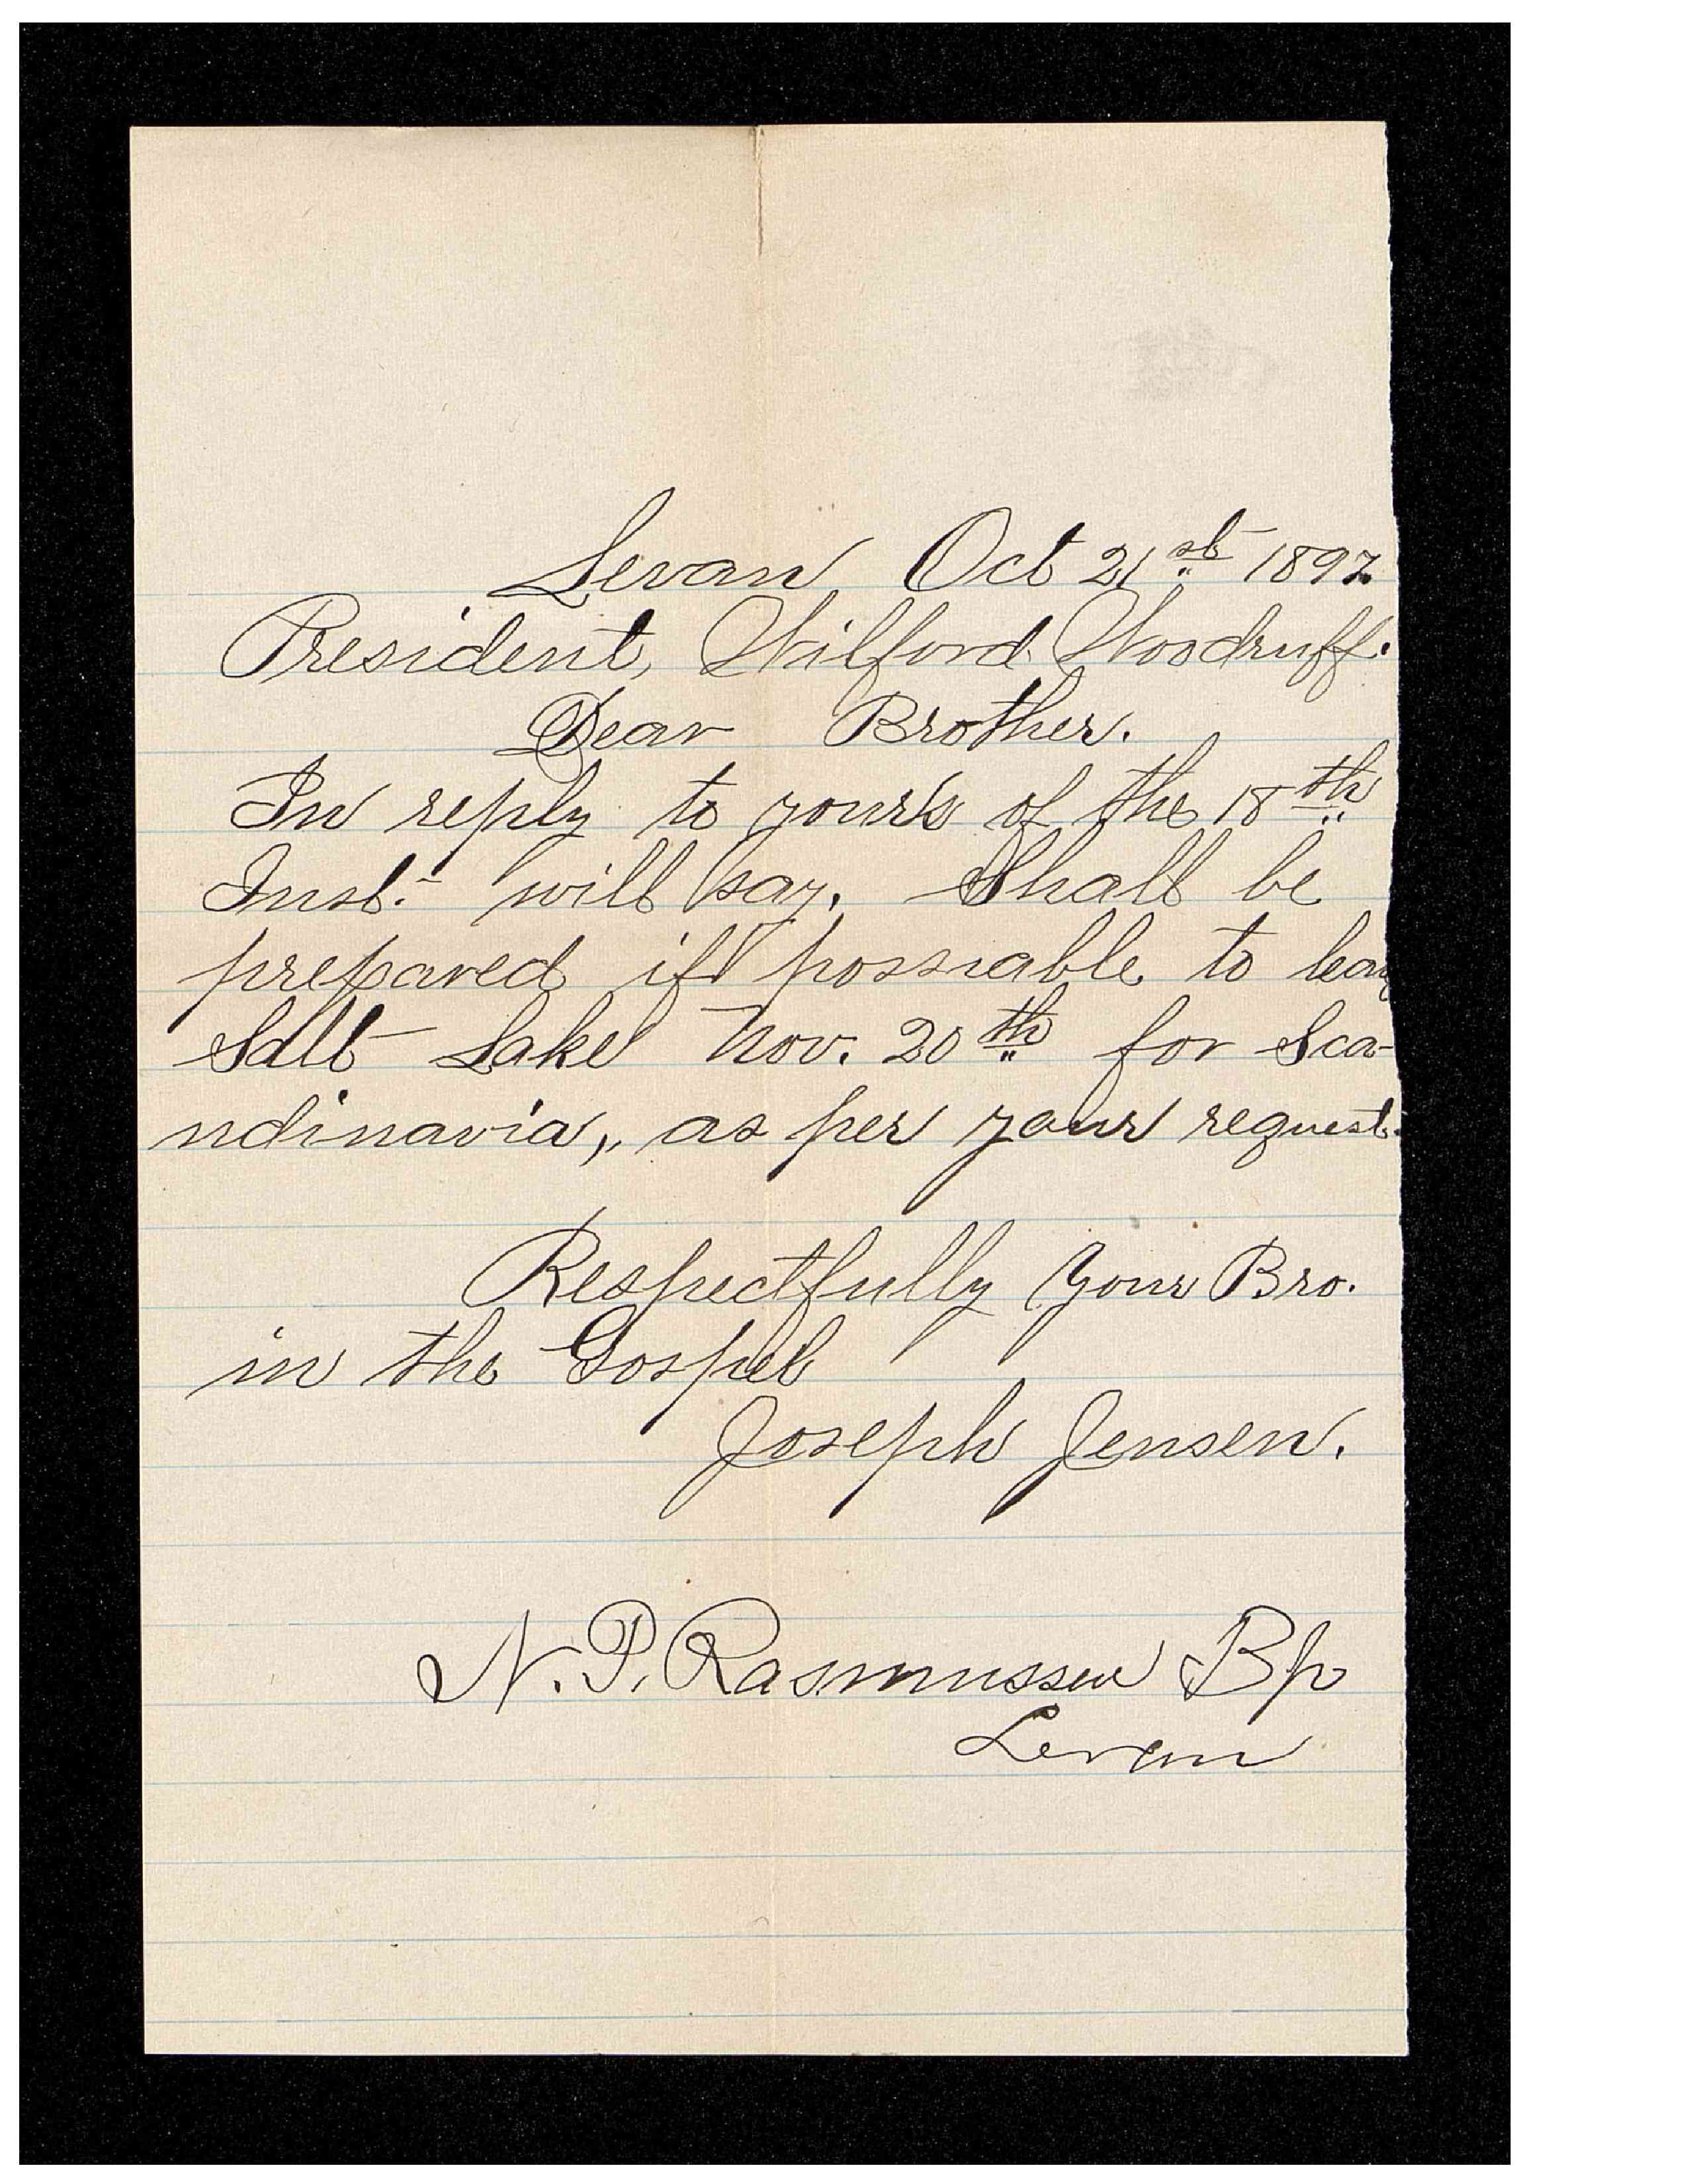 Levan Oct 21st 1897.
President, Wilford Woodruff.
Dear Brother.
In reply to yours of the 18th
Inst. will say. Shall be
prepared if possiable to leav
Salt Lake Nov. 20th for Sca-
ndinavia, as per your request.
Respectfully Your Bro.
in the Gospel
Joseph Jensen.
N. P. Rasmussen Bp
Levan